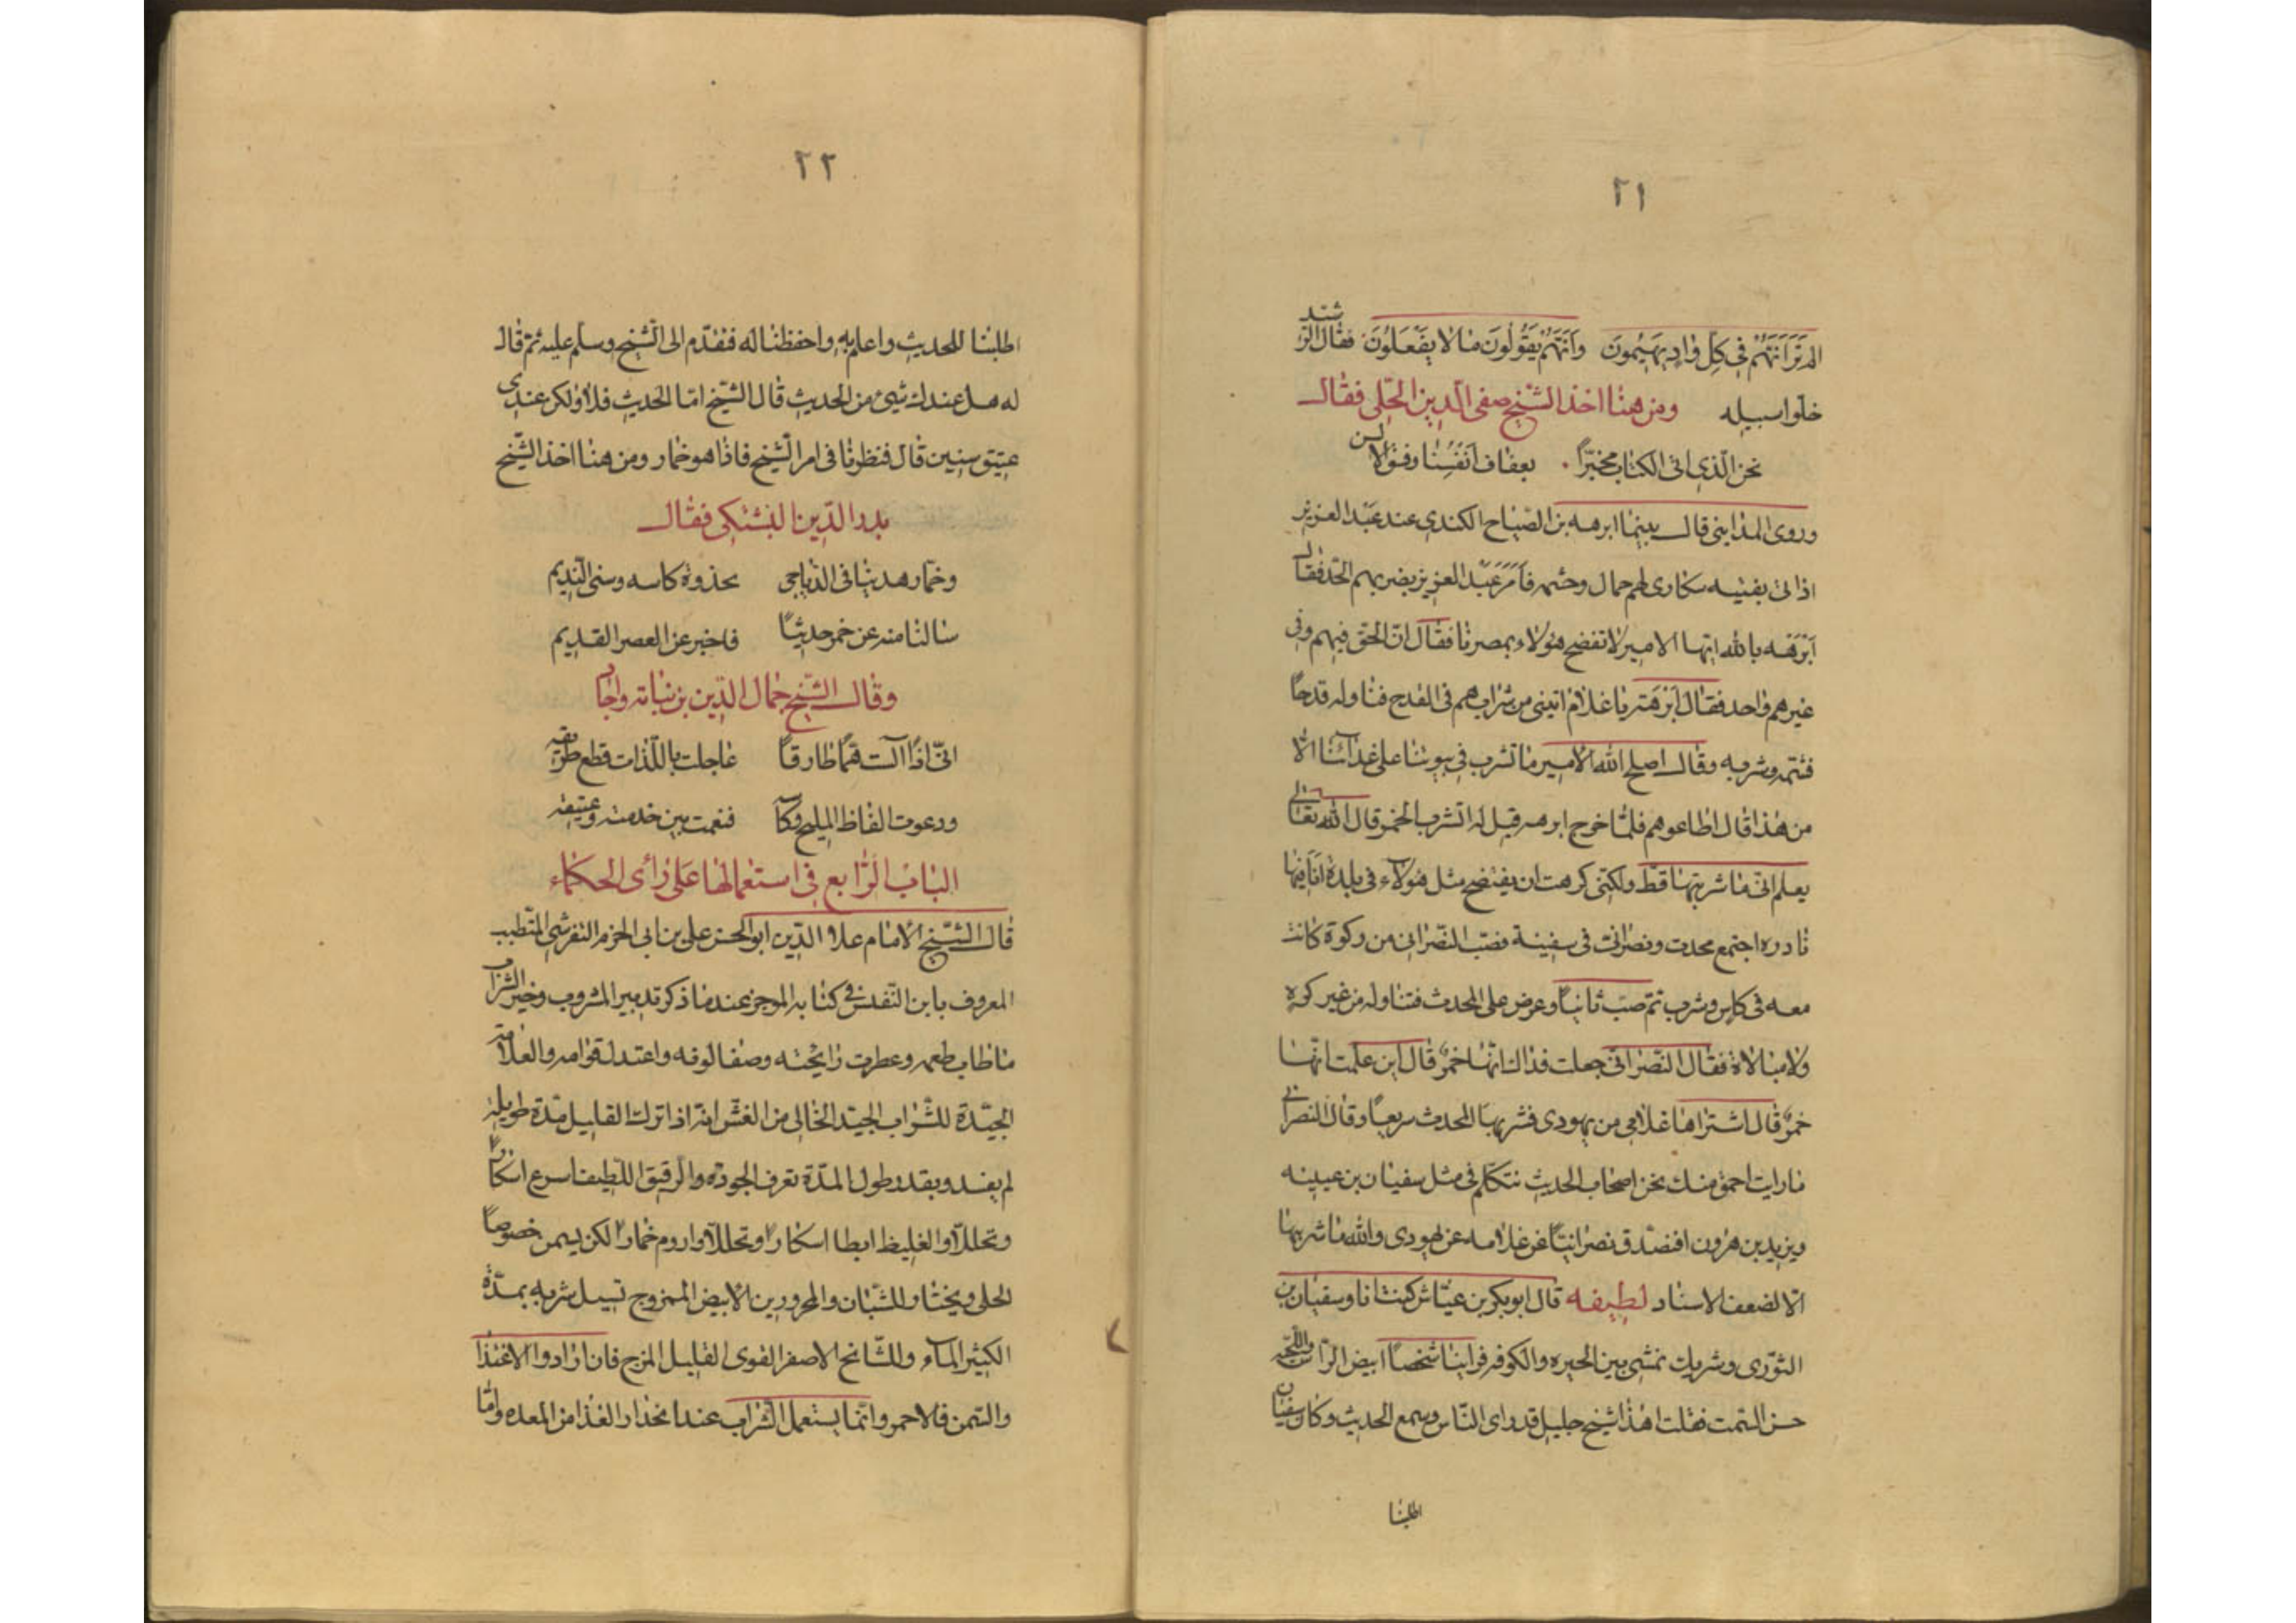 ٢١
الم تر أنهم في كل واد يهيمون وأنهم يقولون ما لا يفعلون فقال الرشيد
خلوا سبيله ومن هنا اخذ الشيخ صفي الدين الحلي فقال
نحن الذي اتى الكتاب مخبراً بعفاف انفسنا وفسق الالسن
وروى المدايني قال بينما ابرهه بن الصباح الكندي عند عبد العزيز
اذ اتى بفتيه سكارى لهم جمال وحشمه فأمر عبد العزيز بضربهم الحد فقال
أبرهه بالله ايها الامير لا تفضح هؤلاء بمصرنا فقال ان الحق فيهم وفي
غيرهم واحد فقال أبرهة يا غلام اتيني من شرابهم في القدح فناوله قدحاً
فشمه وشربه وقال اصلح الله الأمير ما نشرب في بيوتنا على غدائنا الا
من هذا قال اطلقوهم فلما خرج ابرهه قيل له اتشرب الخمر قال الله تعالى
يعلم اني ما شربتها قط ولكني كرهت ان يفتضح مثل هولاء في بلدة انا فيها
نادره اجتمع محدث ونصراني في سفينة فصب النصراني من ركوة كانت
معه في كاس وشرب ثم صب ثانياً وعرض على المحدث فتناوله من غير كره
ولا مبالاة فقال النصراني جعلت فداك انها خمر قال اين علمت انها
خمر قال اشتراها غلامي من يهودي فشربها المحدث سريعاً وقال للنصراني
ما رايت احمق منك نحن اصحاب الحديث نتكلم في مثل سفيان بن عيينه
ويزيد بن هرون افنصدق نصرانيّاً عن غلامه عن يهودي والله ما شربتها
الا لضعف الاسناد لطيفه قال ابو بكر بن عياش كنت انا وسفيان بن
الثوري وشريك نمشي بين الحيره والكوفه فراينا شخصاً ابيض الراس واللحيه
حسن السمت فقلت هذا شيخ جليل قد راى الناس وسمع الحديث وكان سفيان
اطلبنا
٢٢
اطلبنا للحديث واعلم به واحفظنا له فتقدم الى الشيخ وسلم عليه ثم قال
له هل عندك شيئ من الحديث قال الشيخ اما الحديث فلا ولكن عندي
عتيق سنين قال فنظرنا في امر الشيخ فاذا هو خمار ومن هنا اخذ الشيخ
بدر الدين البشتكي فقال
وخمار هدينا في الدياجي بحذوة كاسه وسنى النديم
سالنا منه عن خمر حديثاً فاخبر عن العصر القديم
وقال الشيخ جمال الدين بن نباته واجاد
اني اذا آلست همّاً طارقاً عاجلت باللذات قطع طريقه
ودعوت الفاظ المليح وكاسه فنعمت بين حديثه وعتيقه
الباب الرابع في استعمالها على رأى الحكماء
قال الشيخ الامام علاء الدين ابو الحسن علي بن ابي الحزم القرشي المتطبب
المعروف بابن النفيس في كتابه الموجز عند ما ذكر تدبير المشروب وخير الشراب
ما طاب طعمه وعطرت رايحته وصفا لونه واعتدل قوامه والعلامة
الجيّدة للشراب الجيد الخالي من الغش انه اذا ترك القليل مدة طويله
لم يفسد وبقدر طول المدة تعرف الجوده والرقيق اللطيف اسرع اسكاراً
وتحللاً والغليظ ابطا اسكاراً وتحللاً وادوم خماراً لكن يسمن خصوصاً
الحلي ويختار للشبان والمحرورين الأبيض الممزوج قبل شربه بمدة
الكثير الماء وللمشائخ الاصفر القوي القليل المزج فان ارادوا الاغتذا
والسمن فالاحمر وانما يستعمل الشراب عند انحدار الغذا من المعده واما